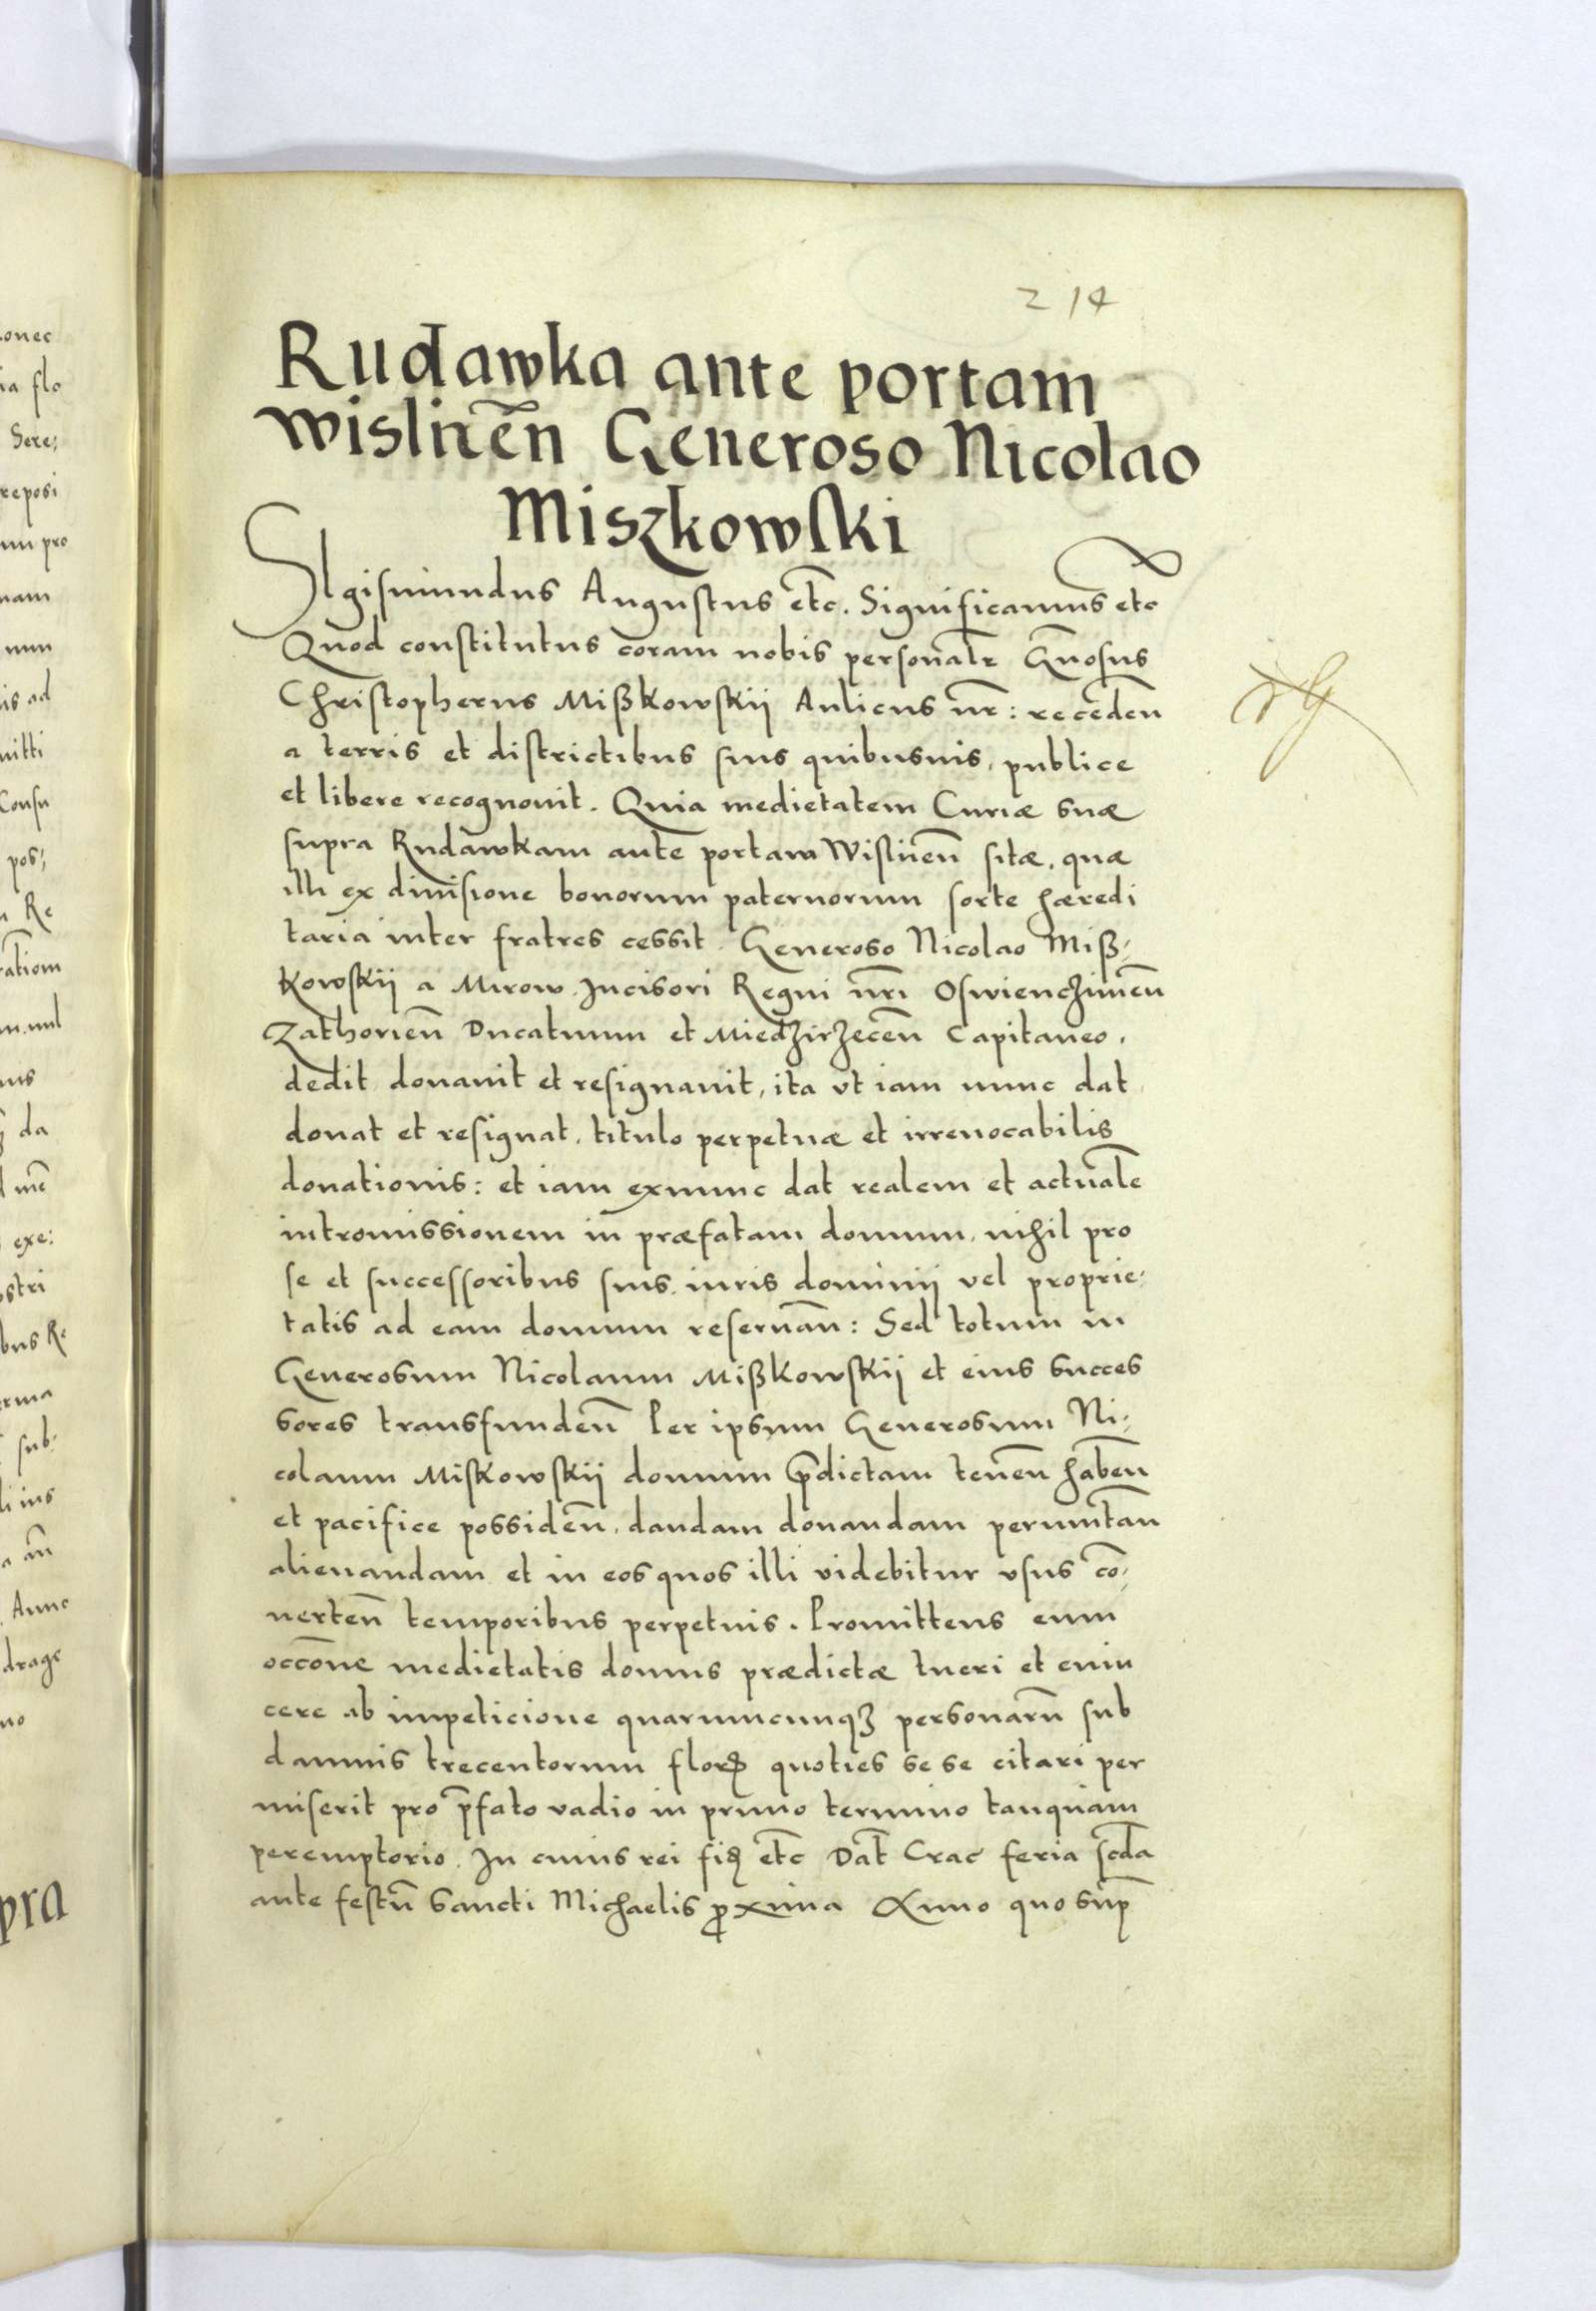 214
Rudawka ante portam
wislnēn Generoso Nicolao
Miszkowski
SIgismundus Augustus etc. Significamus etc
Quod constitutus coram nobis personalr Gnosus
Christopherus Mißkowskii Aulicus nr: receden
a terris et districtibus suis quibusuis, publice
et libere recognouit. Quia medietatem Curiæ suæ
supra Rudawkam ante portam Wislnen sitæ, quæ
illi ex diuisione bonorum paternorum sorte hæredi
taria inter fratres cessit. Generoso Nicolao Miß-
kowskii a Mirow Incisori Regni nri Oswienczimen
Zathorien Ducatuum et Miedzirzecen Capitaneo.
dedit donauit et resignauit, ita vt iam nunc dat
donat et resignat, titulo perpetuæ et irreuocabilis
donationis: et iam exnunc dat realem et actuale
intromissionem in præfatam domum, nihil pro
se et successoribus suis iuris dominii vel proprie-
tatis ad eam domum reseruan: Sed totum in
Generosum Nicolaum Mißkowskii et eius succes
sores transfunden Per ipsum Generosum Ni-
colaum Miskowskii domum pdictam tenen haben
et pacifice possiden, dandam donandam permutan
alienandam et in eos quos illi videbitur vsus co-
uerten temporibus perpetuis. Promittens eum
occone medietatis domus prædictæ tueri et euin
cere ab impeticione quarumcunqꝫ personaru sub
damnis trecentorum flor quoties se se citari per
miserit pro pfato vadio in primo termino tanquam
peremptorio. In cuius rei fid etc Dat Crac feria scda
ante festu Sancti Michaelis proxima Anno quo sup
onec
ia flo
Sere:
reposi
um pro
nam
num
is ad
mitti
Consu
pos:
Re
ratiom
da
me
exe:
ostri
bus Re
sub-
ius
an
Anno
drage
no
pra